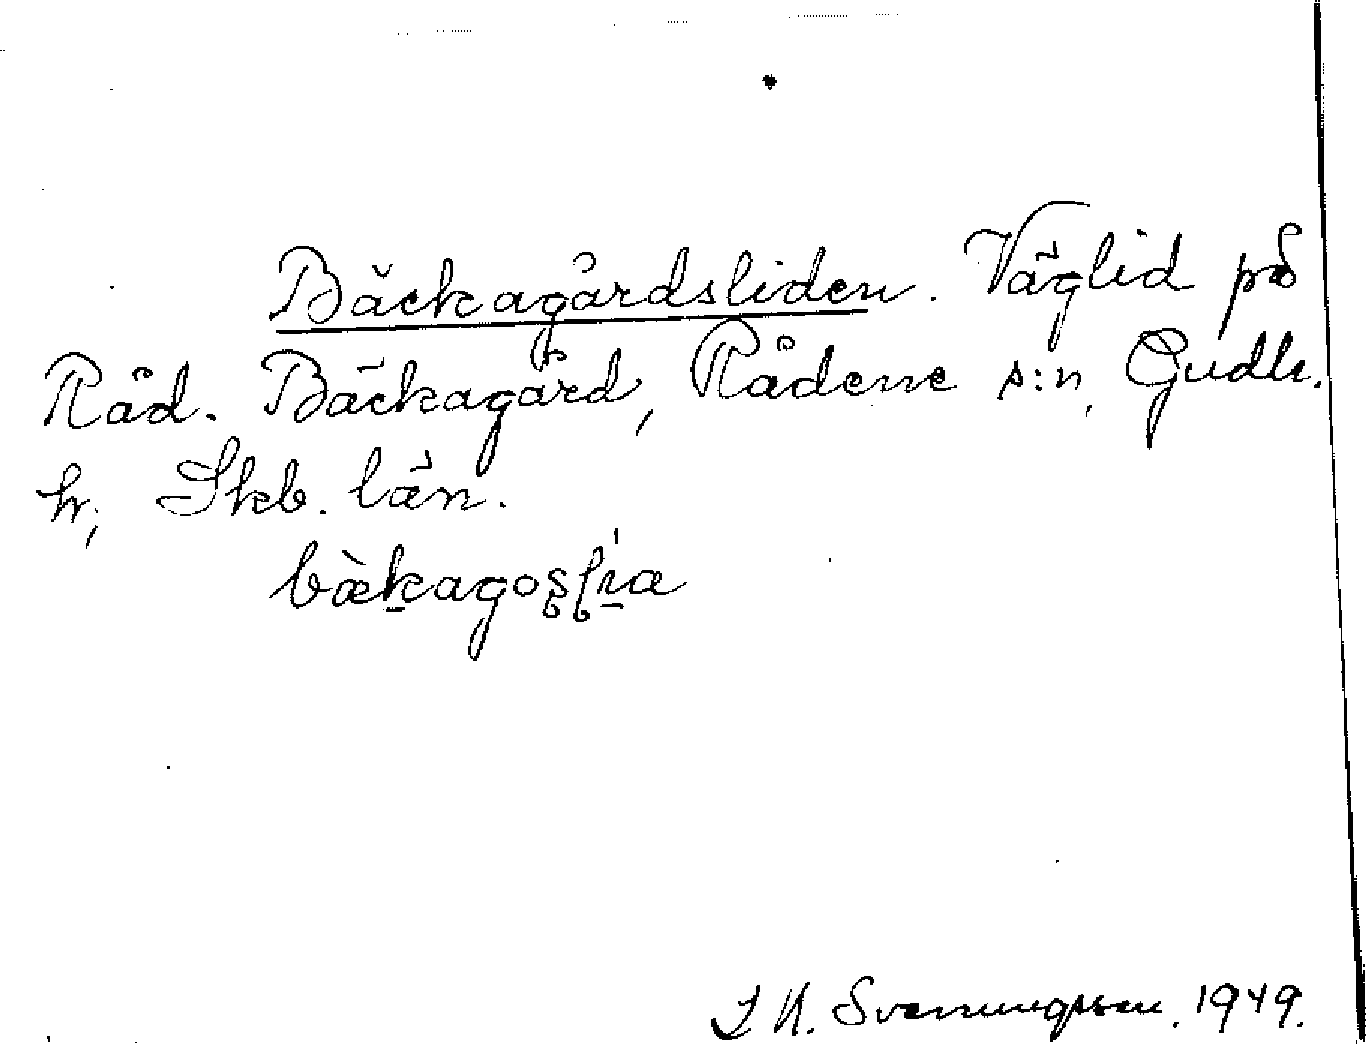 Bäckagårdsliden. Väglid på
Råd. Bäckagård, Rådene s:n, Gudh.
h, Skb. län.
bàkagoslia
1949.